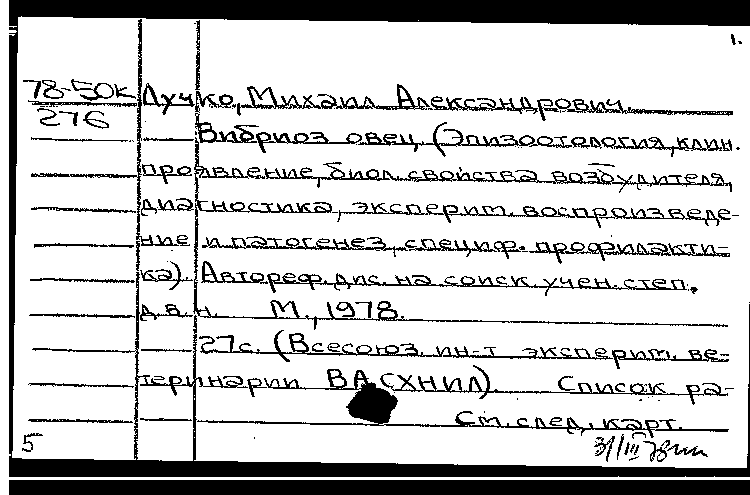 1.
78-50к Лучко, Михаил Александрович.
276
Вибриоз овец (Эпизоотология, клин.
проявление, биол. свойства возбудителя,
диагностика, эксперим. воспроизведе-
ние и патогенез, специф. профилакти-
ка). Автореф. дис. на соиск. учен. степ.
д.в.н. М., 1978.
27с. (Всесоюз. ин-т эксперим. ве-
теринарии ВАСХНИЛ). Список ра-
См. след. карт.
5